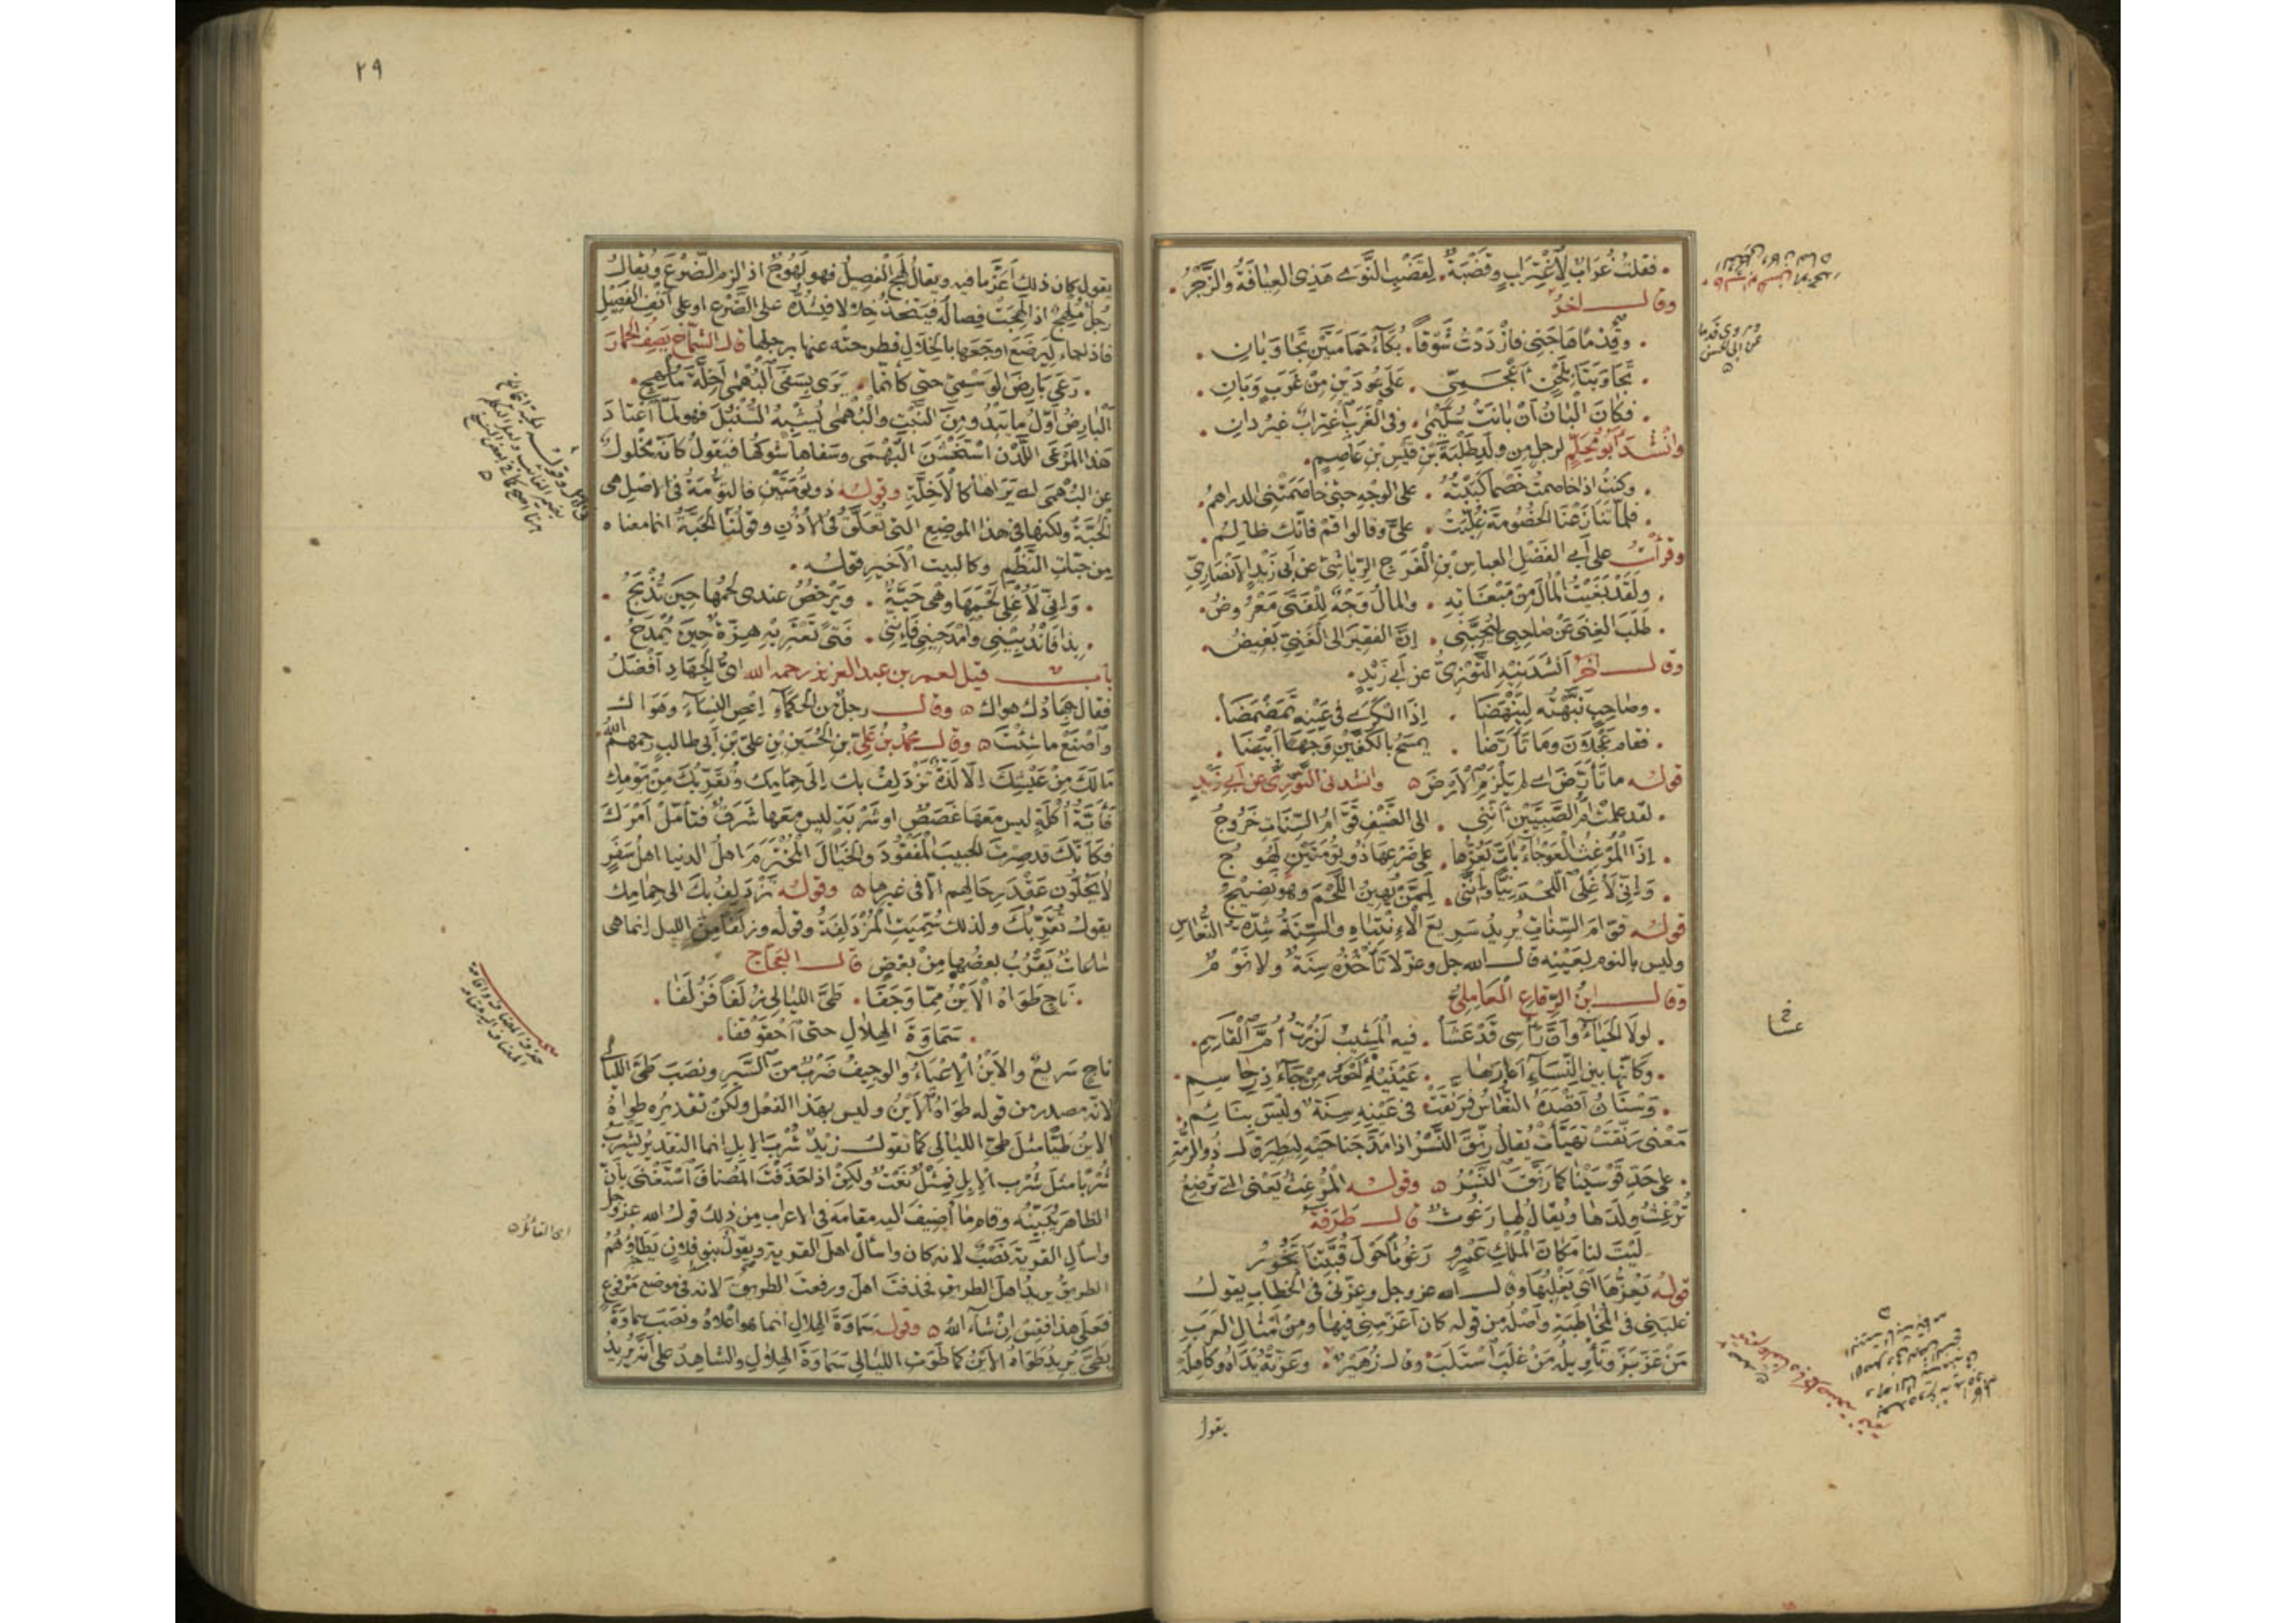 فقلتُ غُرَابٌ لِاغْتِرَابٍ وقَضْبَةٌ . لِقَضْبِ النَّوَى هَذِى العِيَافَةُ والزَّجْرُ .
وقال اخرُ
. وقِدْمًا هَاجَنِى فازْدَدْتُ شَوْقًا . بُكَآءُ حَمَامَتَيْنِ تَجَاوَبَانِ .
. تَجَاوَبَتَا بِلَحْنٍ أَعْجَمِىٍّ . عَلَى عُودَيْنِ مِنْ غَرَبٍ وَبَانِ .
. فكَانَ الْبَانُ أَنْ بَانَتْ سُلَيْمَى . وفى الْغَرَبِ اغْتِرَابٌ غيرُ دانِ .
وانْشَدَ أبُو مُحَلِّمٍ لرجلٍ من ولَدِ طَلَبَةَ بْنِ قَيْسِ بْنِ عَاصِمٍ .
. وكنتُ اذا خاصمتُ خَصْمًا كَبَبْتُهُ . على الوَجْهِ حتى خاصَمَتْنِى الدراهمُ .
. فلمّا تَنَازَعْنَا الخُصُومَةَ غُلِّبَتْ . علىَّ وقالوا قُمْ فانّك ظالِمُ .
وقرأْتُ على أبى الفَضْلِ العباسِ بْنِ الْفَرَجِ الرِّيَاشِىِّ عن أبى زَيْدٍ الأَنْصَارِىِّ
. ولَقَدْ بَغَيْتُ الْمَالَ مِنْ مَبْغَاتِهِ . والمالُ وَجْهٌ لِلْفَتَى مَعْرُوضُ .
. طَلَبَ الغِنَى عَنْ صَاحِبِى لِيُحِبَّنِى . إنَّ الفقيرَ الى الْغَنِىِّ بَغِيضُ .
وقال اخرُ أنشَدَنِيهِ التَّوَّزِىُّ عن أبى زَيْدٍ .
. وصَاحِبٍ نَبَّهْتُهُ لِيَنْهَضَا . إذَا الْكَرَى فى عَيْنِهِ تَمَضْمَضَا .
. فقامَ عَجْلَانَ وَمَا تَأَرَّضَا . يمسَحُ بالكَفَّيْنِ وَجْهًا أَبْيَضَا .
قوله ما تَأَرَّضَ اى لم يَلْزَمِ الأَرْضَ وانشدنى التَّوَّزِىُّ عن أبى زَيْدٍ
. لقد علمتْ أُمُّ الصَّبِيَّيْنِ أنَّنِى . الى الضَّيْفِ قَوَّامُ السِّنَاتِ خَرُوجُ
. إذَا الْمُرْغِثُ العَوْجَآءُ بَاتَ يَعُزُّهَا . على ضَرْعِهَا ذُو تُومَتَيْنِ لَهُوجُ
. وَإنِّى لَأُغْلِى اللَّحْمَ نِيًّا وإنَّنِى . لَمِمَّنْ يُهِينُ اللَّحْمَ وهْوَ نَضِيجُ
قوله قَوّامُ السِّنَاتِ يُرِيدُ سَرِيعَ الاِنْتِبَاهِ والسِّنَةُ شِدَّةُ النُّعَاسِ
وليس بالنومِ بِعَيْنِهِ قال الله جل وعز لا تَأْخُذُهُ سِنَةٌ ولا نَوْمٌ
وقال ابنُ الرِّقَاعِ العَامِلِىُّ
. لولَا الْحَيَآءُ وَأنَّ رَأْسِى قَدْ عَشَا . فيه الْمَشِيبُ لَزُرْتُ أُمَّ الْقَاسِمِ .
. وَكَأَنَّهَا بين النِّسَآءِ أعَارَهَا . عَيْنَيْهِ أَحْوَرُ مِنْ جَآذِرِ جَاسِمِ .
. وَسْنَانُ أَقْصَدَهُ النُّعَاسُ فَرَنَّقَتْ . فى عَيْنِهِ سِنَةٌ وليْسَ بِنَائِمِ .
مَعْنَى رَنَّقَتْ تهيَّأَتْ يُقالُ رنَّقَ النَّسْرُ اذا مَدَّ جَنَاحَيْهِ لِيَطِيرَ قال ذُو الرُّمَّةِ
. على حَدِّ قَوْسَيْنَا كَمَا رَنَّقَ النَّسْرُ وقوله الْمُرْغِثُ يَعْنى التى تُرْضِعُ
تُرْغِثُ ولَدَها ويُقالُ لها رَغُوثٌ قال طَرَفَةُ
لَيْتَ لنا مَكَانَ الْمَلْكِ عَمْرٍو رَغُوثًا حَوْلَ قُبَّتِنَا تَخُورُ
قولُه يَعُزُّهَا أىْ يَغْلِبُهَا وقال الله عز وجل وعزّنى فى الخطابِ يقول
غلبَنى فى المُخَاطَبَةِ وأصْلُه من قولِه كان أعَزَّ مِنِّى فيها ومِنْ أمْثَالِ العَرَبِ
مَنْ عَزَّ بَزَّ وَتَأْوِيلُه مَنْ غَلَبَ اسْتَلَبَ وقال زُهَيْرٌ . وعَزَّتْهُ يَدَاهُ وكَاهِلُهْ
يقول
وروى قدما
عن ابى الحسن
خ
عسا
٢٩
يقول كان ذلك أعَزَّ ما فيه ويقالُ لَهِجَ الْفَصِيلُ فهو لَهُوجٌ اذا لزم الضَّرْعَ ويُقالُ
رَجُلٌ مُلْهِجٌ اذا لَهِجَتْ فِصَالُه فيَتَّخِذُ خِلَالًا فيَشُدُّه على الضَّرْعِ او على أنْفِ الفَصِيلِ
فاذا جاء لِيَرْضَعَ اوجَعَها بالخِلَالِ فطرحتْه عنها برجلِها قال الشمّاخُ يَصِفُ الحمارَ
. رَعَى بَارِضَ الوَسْمِىِّ حتى كانّما . يَرَى بِسَفَى الْبُهْمَى أَخِلَّةَ مُلْهِجِ .
الْبَارِضُ أوّلُ ما يَبْدُو مِنَ النَّبْتِ والْبُهْمَى يُشْبِهُ السُّنْبُلَ فهو لَمَّا اعْتَادَ
هَذا المَرْعَى اللَّدْنَ اسْتَخْشَنَ الْبُهْمَى وسَفَاها شوكُها فيَقولُ كانّه مَخْلُولٌ
عن البُهْمَى اى يَرَاها كالأَخِلَّةِ وقوله ذو تُومَتَيْنِ فالتُّومَةُ فى الاصل هى
الْحَبَّةُ ولكنها فى هذا الموضع التى تُعَلَّقُ فى الأُذُنِ وقولُنَا الْحَبَّةُ انما معناه
مِن حَبَّاتِ النَّظْمِ وكالبيتِ الأَخِيرِ قوله .
. وَإنِّى لَأُغْلِى لَحْمَهَا وهْىَ حَيَّةٌ . ويَرْخُصُ عندى لَحْمُهَا حِينَ تُذْبَحُ .
. بِذا فَانْدُبِينِى وامْدَحِينِى فَإنَّنِى . فَتًى تَعْتَرِيهِ هِزَّةٌ حِينَ يُمْدَحُ .
باب قيل لعمر بن عبد العزيز رحمه الله اىُّ الجِهَادِ أفْضَلُ
فقال جِهَادُكَ هواك وقال رجلٌ من الحُكَمَآءِ اعْصِ النِّسَآءَ وهَوَاكَ
واصْنَعْ ما شِئْتَ وقال محمدُ بنُ عَلِىِّ بنِ الحُسَيْنِ بْنِ علىِّ بْنِ أبى طالبٍ رحمهم الله
مَا لَكَ مِنْ عَيْشِكَ إلَّا لَذَّةٌ تَزْدَلِفُ بِكَ إلَى حِمَامِكَ وتُقَرِّبُكَ مِنْ يَوْمِكَ
فَأَيَّةُ أُكْلَةٍ ليس معَهَا غَصَصٌ او شَرْبَةٍ ليس معَها شَرَقٌ فتأمَّلْ أمْرَكَ
فكَأَنَّكَ قد صِرْتَ الحبيبَ الْمَفْقُودَ والخَيَالَ الْمُخْتَرَمَ اهلُ الدنيا اهلُ سَفَرٍ
لَا يَحُلُّونَ عَقْدَ رِحَالِهِم الّا فى غيرِها وقوله تَزْدَلِفُ بكَ الى حِمَامِكَ
يقولُ تُقَرِّبُكَ ولذلك سُمِّيَتِ الْمُزْدَلِفَةُ وقولُه وزُلَفًا مِنَ الليلِ انما هى
ساعاتٌ يَقْرُبُ بعضُها مِنْ بعْضٍ قال العَجّاجُ
. نَاجٍ طَوَاهُ الْأَيْنُ مِمَّا وَجَفَا . طَىَّ اللَّيَالِى زُلَفًا فَزُلَفَا .
. سَمَاوَةَ الهِلَالِ حتى احْقَوْقَفَا .
ناجٍ سَرِيعٌ والأَيْنُ الْإعْيَآءُ والوجِيفُ ضَرْبٌ مِنَ السَّيْرِ ونصَبَ طَىَّ اللَّيالى
لانّه مصدر من قوله طَوَاهُ الأَيْنُ وليس بهذا الفعل ولكنْ تقديرُه طواهُ
الاينُ طَيًّا مثلَ طَىِّ الليالى كما تقولُ زيدٌ شُرْبَ الإبِلِ انما التقديرُ يَشْرَبُ
شُرْبًا مثلَ شُرْبِ الإبِلِ فمِثْلٌ نَعْتٌ ولكنْ اذا حَذَفْتَ المُضافَ اسْتَغْنَى بأنّ
الظاهرَ يُبَيِّنُه وقام ما أُضِيفَ اليه مقامَه فى الاعراب من ذلك قولُ الله عز وجل
واسألِ القريةَ نَصْبٌ لانه كان واسألْ اهلَ القريةِ ويقولُ بنو فلانٍ يَطَؤُهُمُ
الطريقُ يريدُ اهلَ الطريقِ فحذفتَ اهلَ ورفعتَ الطريقَ لانه فى موضعِ مَرْفُوعٍ
فعلَى هذا فقِسْ إنْ شَآءَ اللهُ وقولُه سَمَاوَةَ الهِلَالِ انما هو أعْلَاهُ ونصَبَ سماوةَ
بِطَىّ يُرِيدُ طَوَاهُ الأَيْنُ كما طَوَتِ الليَالى سَمَاوَةَ الهِلَالِ والشاهِدُ على أنّه يُرِيدُ